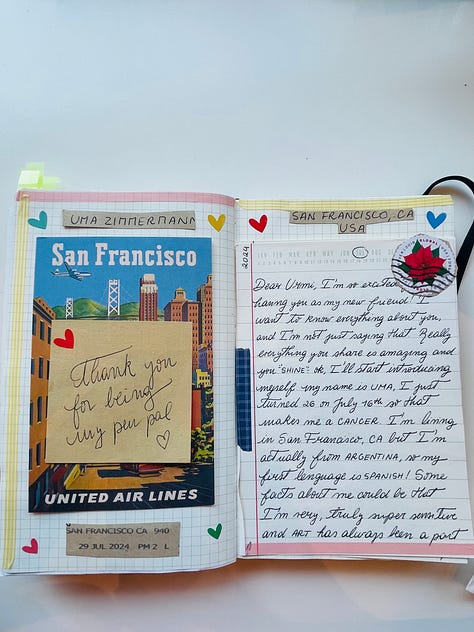 UMA ZIMMERMANN
San Francisco
Thank you
for being
my pen pal
UNITED AIR LINES
SAN FRANCISCO CA 940
29 JUL 2024 PM 2 L
SAN FRANCISCO, CA
USA
2024
JAN FEB MAR APR MAY JUN JUL AUG
GLOBAL
Dear Urmi, I'm so excited
having you as my new friend! I
want to know everything about you,
and I'm not just saying that. Really
everything you share is amazing and
you "SHINE". ok, I'll start introducing
myself. my name is UMA, I just
turned 26 on July 16th so that
makes me a CANCER. I'm living
in San Francisco, CA but I'm
actually from ARGENTINA, so my
first language is SPANISH! Some
facts about me could be that
I'm very, truly super sensitive
and ART has always been a part